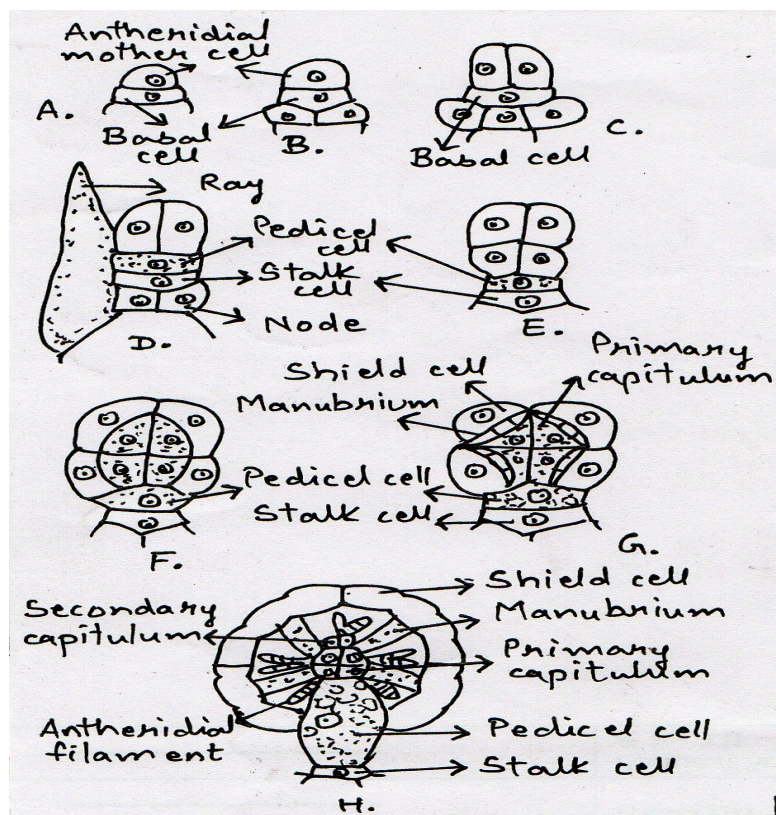 Antheridial
mother cell
A.
Babal
cell
B.
Babal cell
C.
Ray
Pedicel
cell
Stalk
cell
Node
D.
E.
Shield cell
Manubrium
Primary
capitulum
Pedicel cell
Stalk cell
F.
G.
Secondary
capitulum
Shield cell
Manubrium
Primary
capitulum
Antheridial
filament
Pedicel cell
Stalk cell
H.